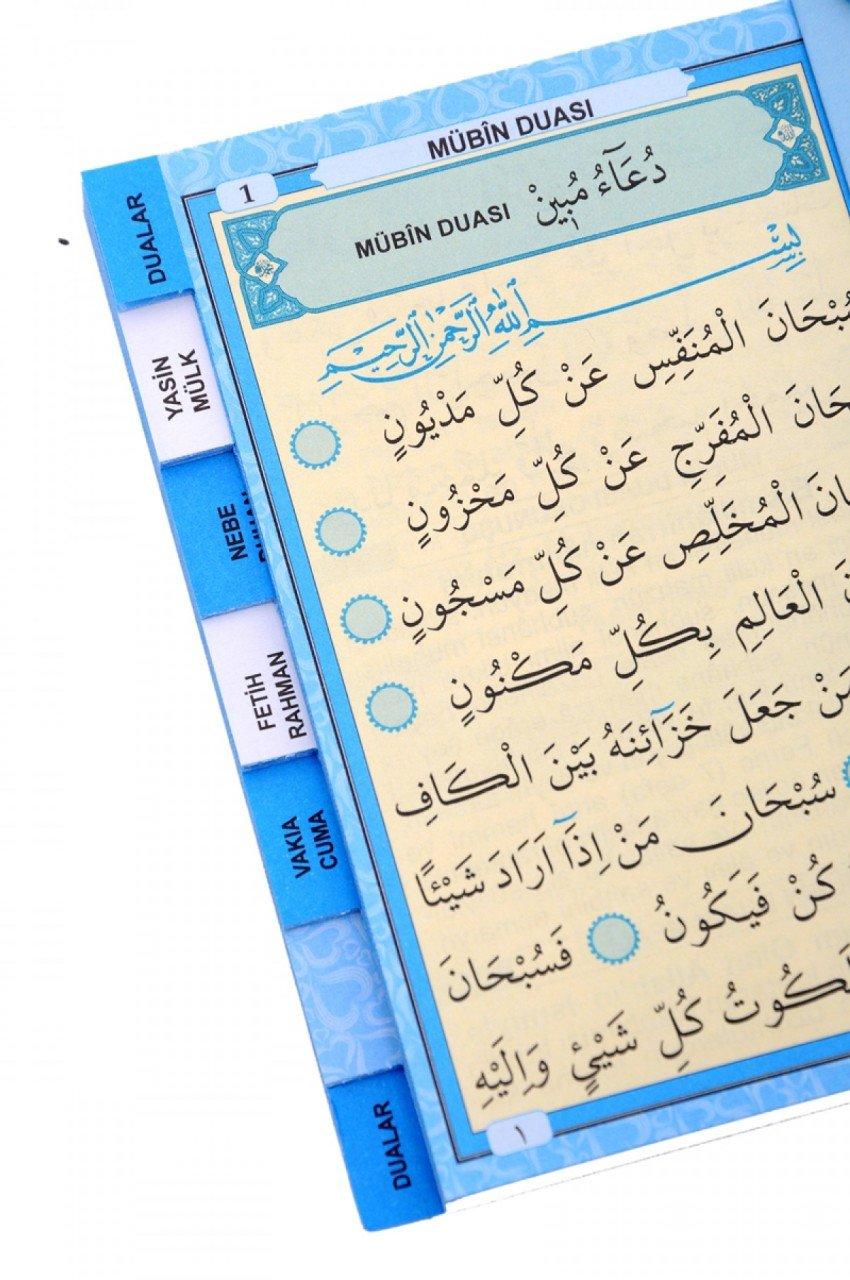 MÜBÎN DUASI
1
MÜBÎN DUASI دُعَٓاءُ مُبِينْ
١
بِسْمِ اللّٰهِ الرَّحْمٰنِ الرَّحِيمِ
الْمُنَفِّسِ عَنْ كُلِّ مَدْيُونٍ
الْمُفَرِّجِ عَنْ كُلِّ مَحْزُونٍ
الْمُخَلِّصِ عَنْ كُلِّ مَسْجُونٍ
الْعَالِمِ بِكُلِّ مَكْنُونٍ
مَنْ جَعَلَ خَزَٓائِنَهُ بَيْنَ الْكَافِ
سُبْحَانَ مَنْ اِذَٓا اَرَادَ شَيْئًا
كُنْ فَيَكُونُ فَسُبْحَانَ
كُلِّ شَيْئٍ وَاِلَيْهِ
١
DUALAR
YASİN
MÜLK
NEBE
FETİH
RAHMAN
VAKIA
CUMA
DUALAR